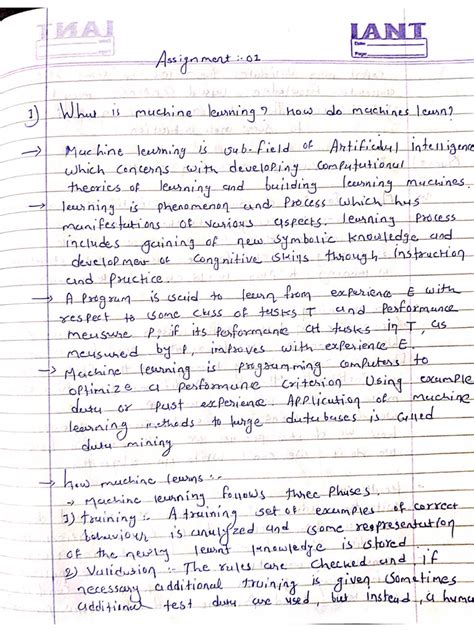 IANT
Date:
Page:
Assignment :- 01
1) What is machine learning? How do machines learn?
→ Machine learning is sub-field of Artificial Intelligence
which concerns with developing computational
theories of learning and building learning machines.
→ learning is phenomenon and process which has
manifestations of various aspects. learning process
includes gaining of new symbolic knowledge and
development of congnitive skills through instruction
and practice.
→ A program is said to learn from experience E with
respect to some class of tasks T and performance
measure P, if its performance at tasks in T, as
measured by P, improves with experience E.
→ Machine learning is programming computers to
optimize a performance criterion using example
data or past experience. Application of machine
learning methods to large databases is called
data mining
→ how machine learns :-
→ Machine learning follows three phases.
1) training :- A training set of examples of correct
behaviour is analyzed and some respresentation
of the newly learnt knowledge is stored
2) Validation :- The rules are checked and, if
necessary additional training is given. Sometimes
additional test data are used, but instead, a human